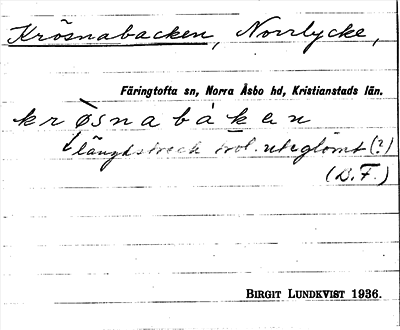 Krösnabacken, Norrlycke,
Färingtofta sn, Norra Åsbo hd, Kristianstads län.
krøsnabáken
längdstreck trol. uteglömt (?)
(D.F.)
BIRGIT LUNDKVIST 1936.